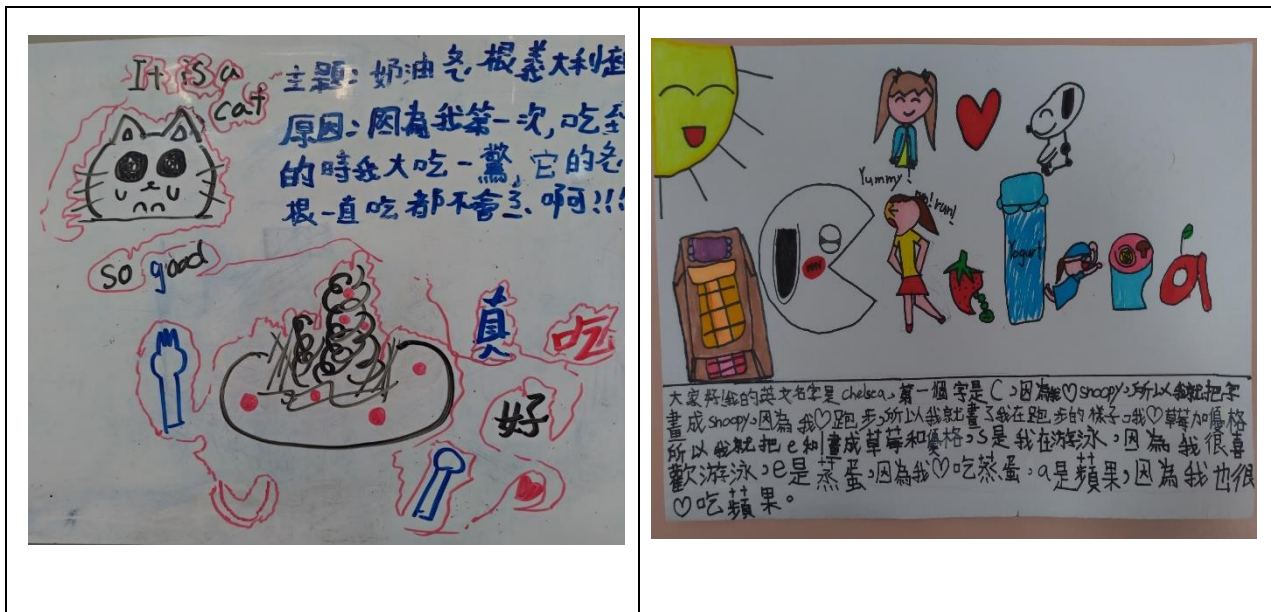 It is a
cat
主題：奶油冬根義大利麵
原因：因為我第一次,吃到
的時我大吃一驚,它的冬
根一直吃都不會ㄋ、啊!!!
so good
真
吃
好
Yummy!
no! run!
Yogurt
大家好!我的英文名字是chelsea,第一個字是C,因為我♡snoopy,所以我就把字
畫成snoopy,因為我♡跑步,所以我就畫了我在跑步的樣子。我♡草莓加優格
所以我就把e和l畫成草莓和優格,s是我在游泳,因為我很喜
歡游泳,e是蒸蛋,因為我♡吃蒸蛋,a是蘋果,因為我也很
♡吃蘋果。